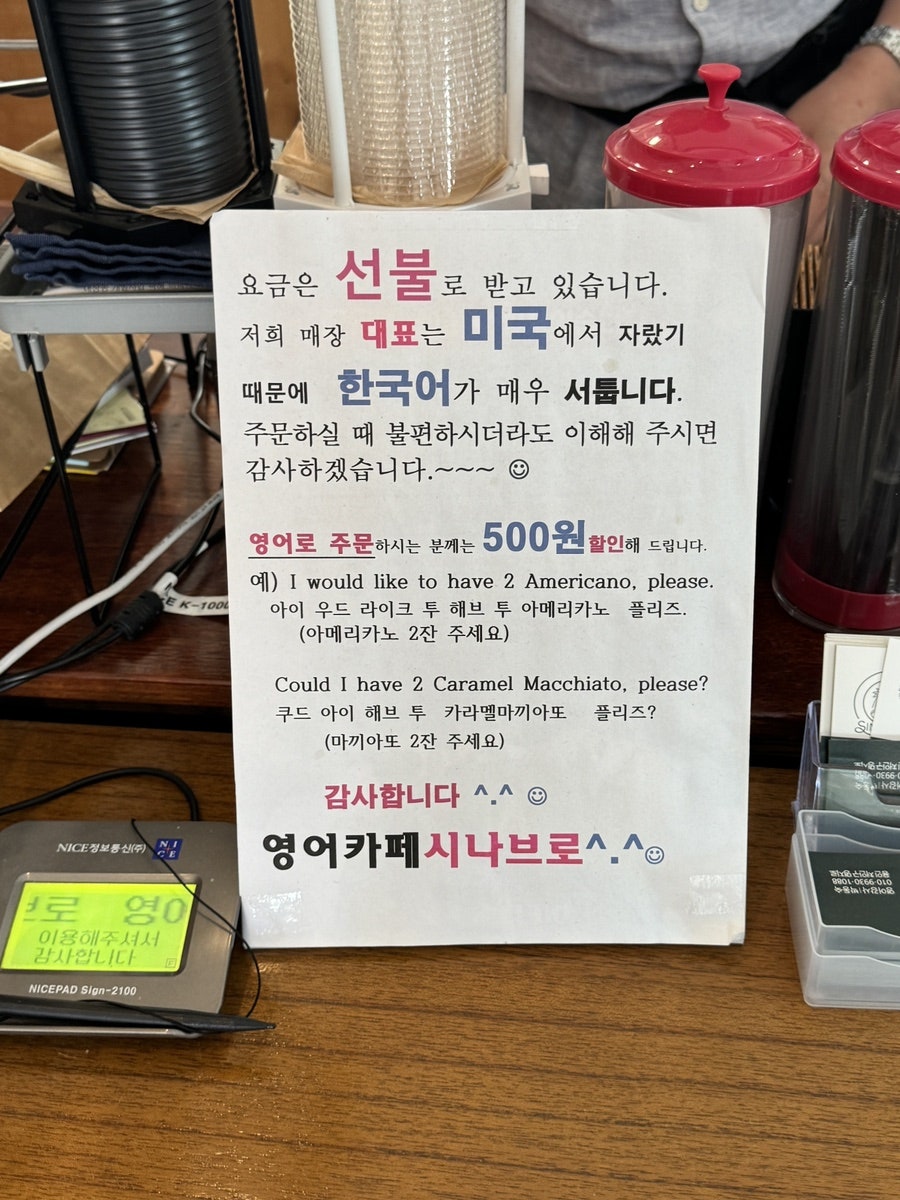 요금은 선불로 받고 있습니다.
저희 매장 대표는 미국에서 자랐기
때문에 한국어가 매우 서툽니다.
주문하실 때 불편하시더라도 이해해 주시면
감사하겠습니다.~~~ ☺
영어로 주문하시는 분께는 500원할인해 드립니다.
예) I would like to have 2 Americano, please.
아이 우드 라이크 투 해브 투 아메리카노 플리즈.
(아메리카노 2잔 주세요)
Could I have 2 Caramel Macchiato, please?
쿠드 아이 해브 투 카라멜마끼아또 플리즈?
(마끼아또 2잔 주세요)
감사합니다 ^.^ ☺
영어카페시나브로^.^☺
NICE정보통신(주) NICE
브로 영어
이용해주셔서
감사합니다
NICEPAD Sign-2100
K-1000
010-9930-1088